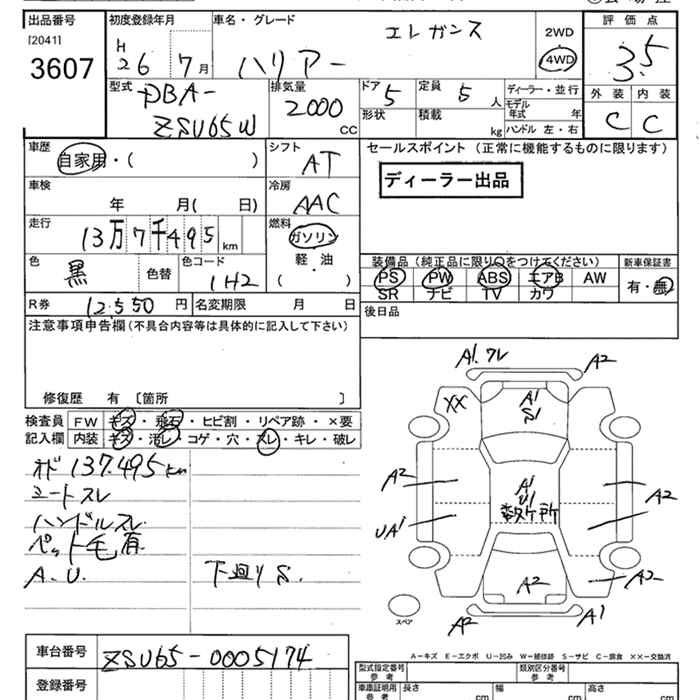 出品番号
[2041]
3607
初度登録年月
H
26 7月
車名・グレード
エレガンス
ハリアー
2WD
4WD
評価点
3.5
外装 内装
C C
型式
DBA-
ZSU65W
排気量
2000
CC
ドア 5
定員 5 人
形状
積載 kg
ディーラー・並行
モデル年式 年
ハンドル 左・右
車歴
自家用・( )
シフト
AT
セールスポイント(正常に機能するものに限ります)
ディーラー出品
車検
年 月( 日)
冷房
AAC
走行
13万7千495 km
燃料
ガソリン
軽・油
( )
色
黒
色替
色コード
1H2
装備品(純正品に限り○をつけてください)
PS PW ABS エアB AW
SR ナビ TV カワ
新車保証書
有・無
R券 12,550 円
名変期限 月 日
後日品
注意事項申告欄(不具合内容等は具体的に記入して下さい)
修復歴 有 〔箇所 〕
検査員
記入欄
FW キズ・飛石・ヒビ割・リペア跡・×要
内装 キズ・汚レ・コゲ・穴・スレ・キレ・破レ
オド137.495km
シートスレ
ハンドルスレ
ペット毛有
A.U.
下廻りS.
A1.ワレ
A2
XX
A1
S1
A2
A1
U1
数ヶ所
A2
UA1
A2
A2
A2
A1
スペア
A－キズ E－エクボ U－凹み W－補修跡 S－サビ C－腐食 ××－交換済
車台番号
ZSU65-0005174
登録番号
型式指定番号
参考
類別区分番号
参考
車庫証明用
参考
長さ cm
幅 cm
高さ cm